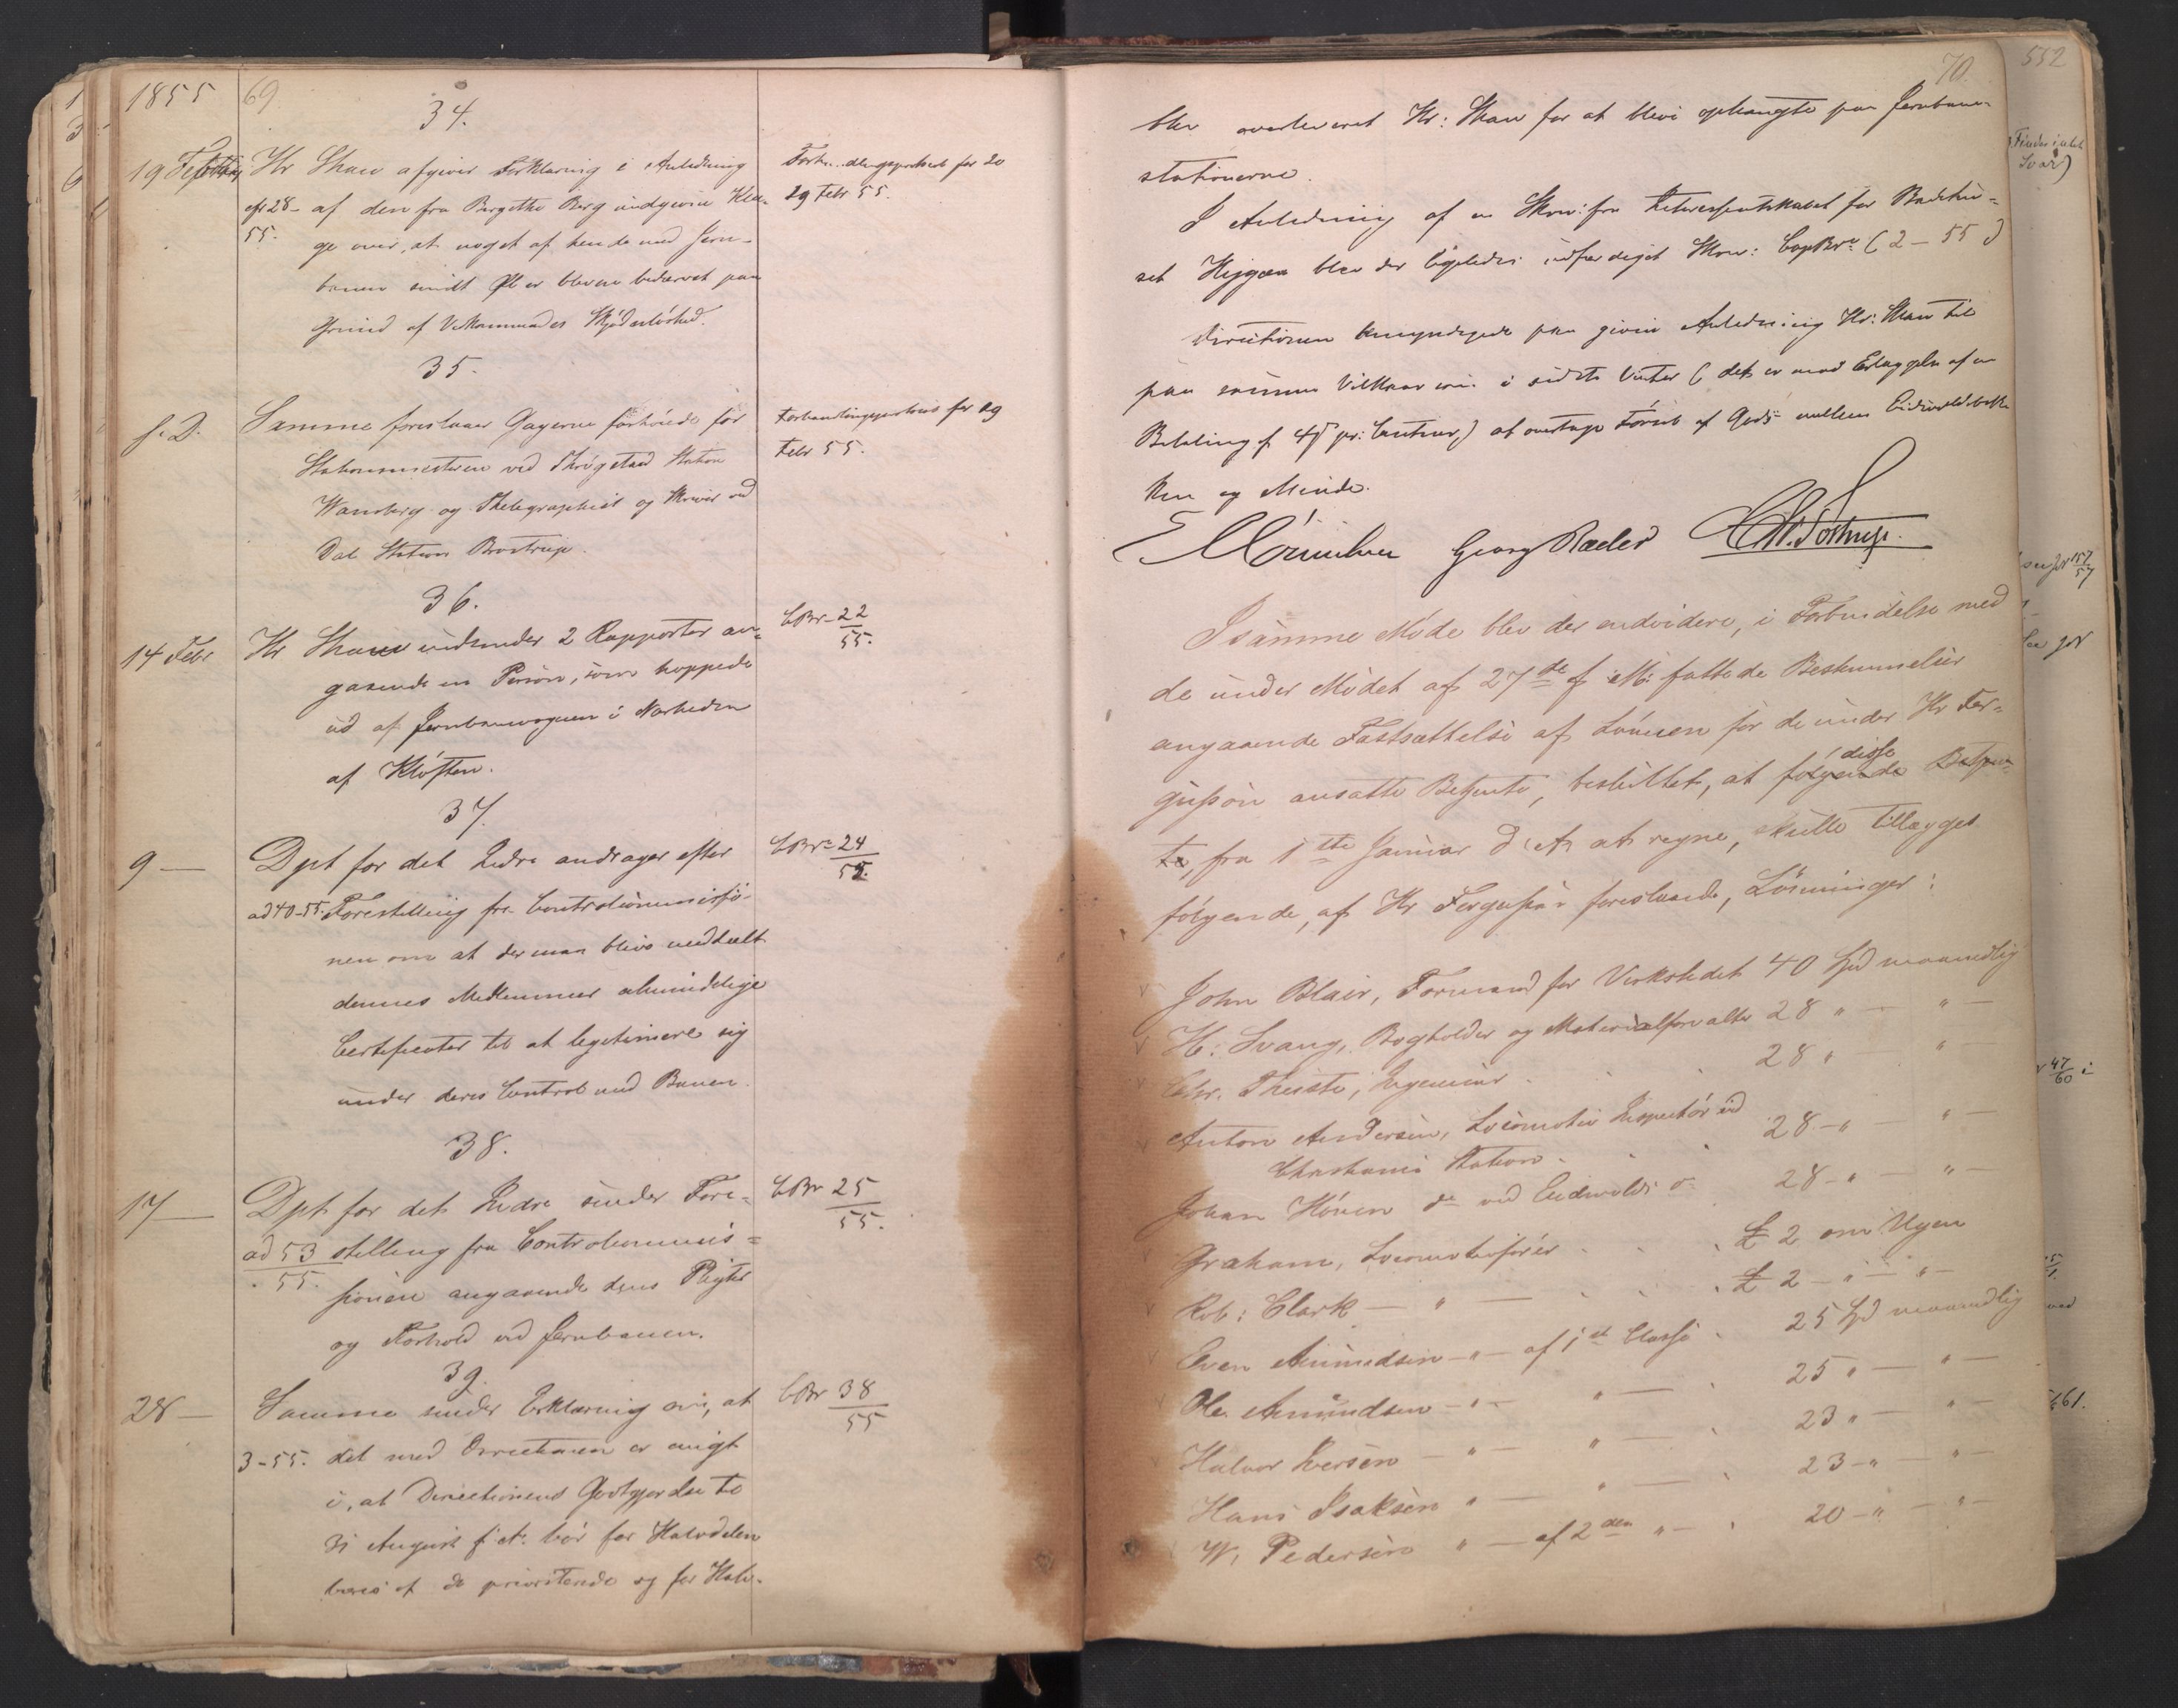 1855
69
34.
19 Febr Hr Shaw afgiver Erklæring i Anledning
cfr 28- af den fra Birgitte Berg indgivne Kla-
55. ge over, at noget af hende med Jern-
banen sendt Øl er bleven bedærvet paa
Grund af Vedkommendes Skjødesløshed.
Forhandlingsprotocol for 20
29 Febr 55.
35.
s. D. Samme foreslaaer Gagerne forhöiede for
Stationsmesteren ved Trøgstad Station
Wansberg og Thelegraphist og Skriver ved
Dal Station Brostrup.
Forhandlingsprotocol for 29
Febr 55.
36.
14 Febr Hr Shaw indsender 2 Rapporter an-
gaaende en Person, som hoppede
ud af Jernbanevognen i Nærheden
af Kløften.
CBr- 22
55.
37.
9 — Dpt for det Indre andrager efter
ad 40-55. Forestilling fra Controlcommissio-
nen om at der maa blive meddeelt
dennes Medlemmer almindelige
Certificater til at legitimere sig
under deres Control ved Banen.
CBr- 24
55.
38.
17 — Dpt for det Indre sender Fore-
ad 53 stilling fra Controlcommis-
55. sionen angaaende dens Pligter
og Forhold ved Jernbanen.
CBr 25
55.
39.
28 — Samme sender Erklæring om, at
3-55. det med Directionen er enigt
i, at Directionens Godtgjørelse til
31 August f. A. bør for Halvdelen
bæres af de prioriterede og for Halv-
CBr 38
55
70.
blev overleveret Hr: Shaw for at blive ophængte paa Jernbane-
stationerne.
I Anledning af en Skriv: fra Interessentskabet for Badehu-
set Hygæa blev der ligeledes udfærdiget Skriv: CopBr: (2-55)
Directionen bemyndigede paa given Anledning Hr: Shaw til
paa samme Vilkaar som i sidste Vinter (det er mod Erlæggelse af en
Betaling af 4ß pr: Centner,) at overtage Førsel af Gods mellem Eidsvoldsbak-
ken og Minde.
Georg Ræder
I samme Møde blev der endvidere, i Forbindelse med
de under Mødet af 27de f. M: fattede Bestemmelser
angaaende Fastsættelse af Lønnen for de under Hr Fer-
gusson ansatte Betjente, besluttet, at følgende disse Betjen-
te, fra 1ste Januar d: A: at regne, skulle tillægges
følgende, af Hr Fergusson foreslaaede, Lønninger:
John Blair, Formand for Verkstedet 40 Spd maanedlig
H: Svang, Bogholder og Materialforvalter 28 " — " —
Chr. Thriste, Ingenieur . . . 28 " — "
Anton Andersen, Locomotiv Inspectør ved
Christiania Station . . . 28 - " — " —
Johan Höven do ved Eidsvolds do 28 - " — " —
Graham, Locomotivfører . . . £ 2 om Ugen
Rob: Clark — " — . . . £ 2 - " - " -
Even Amundsen - " - af 1st Classe . 25 Spd maanedlig
Ole Amundsen - " - " — . 25 " — " —
Halvor Iversen - " — " — . 23 " — " —
Hans Isaksen " — " — . 23 - " — " —
W. Pedersen " — af 2den " — . 20 - " — " —
552
(Findes i
Svar)
157
57
47
60
61.